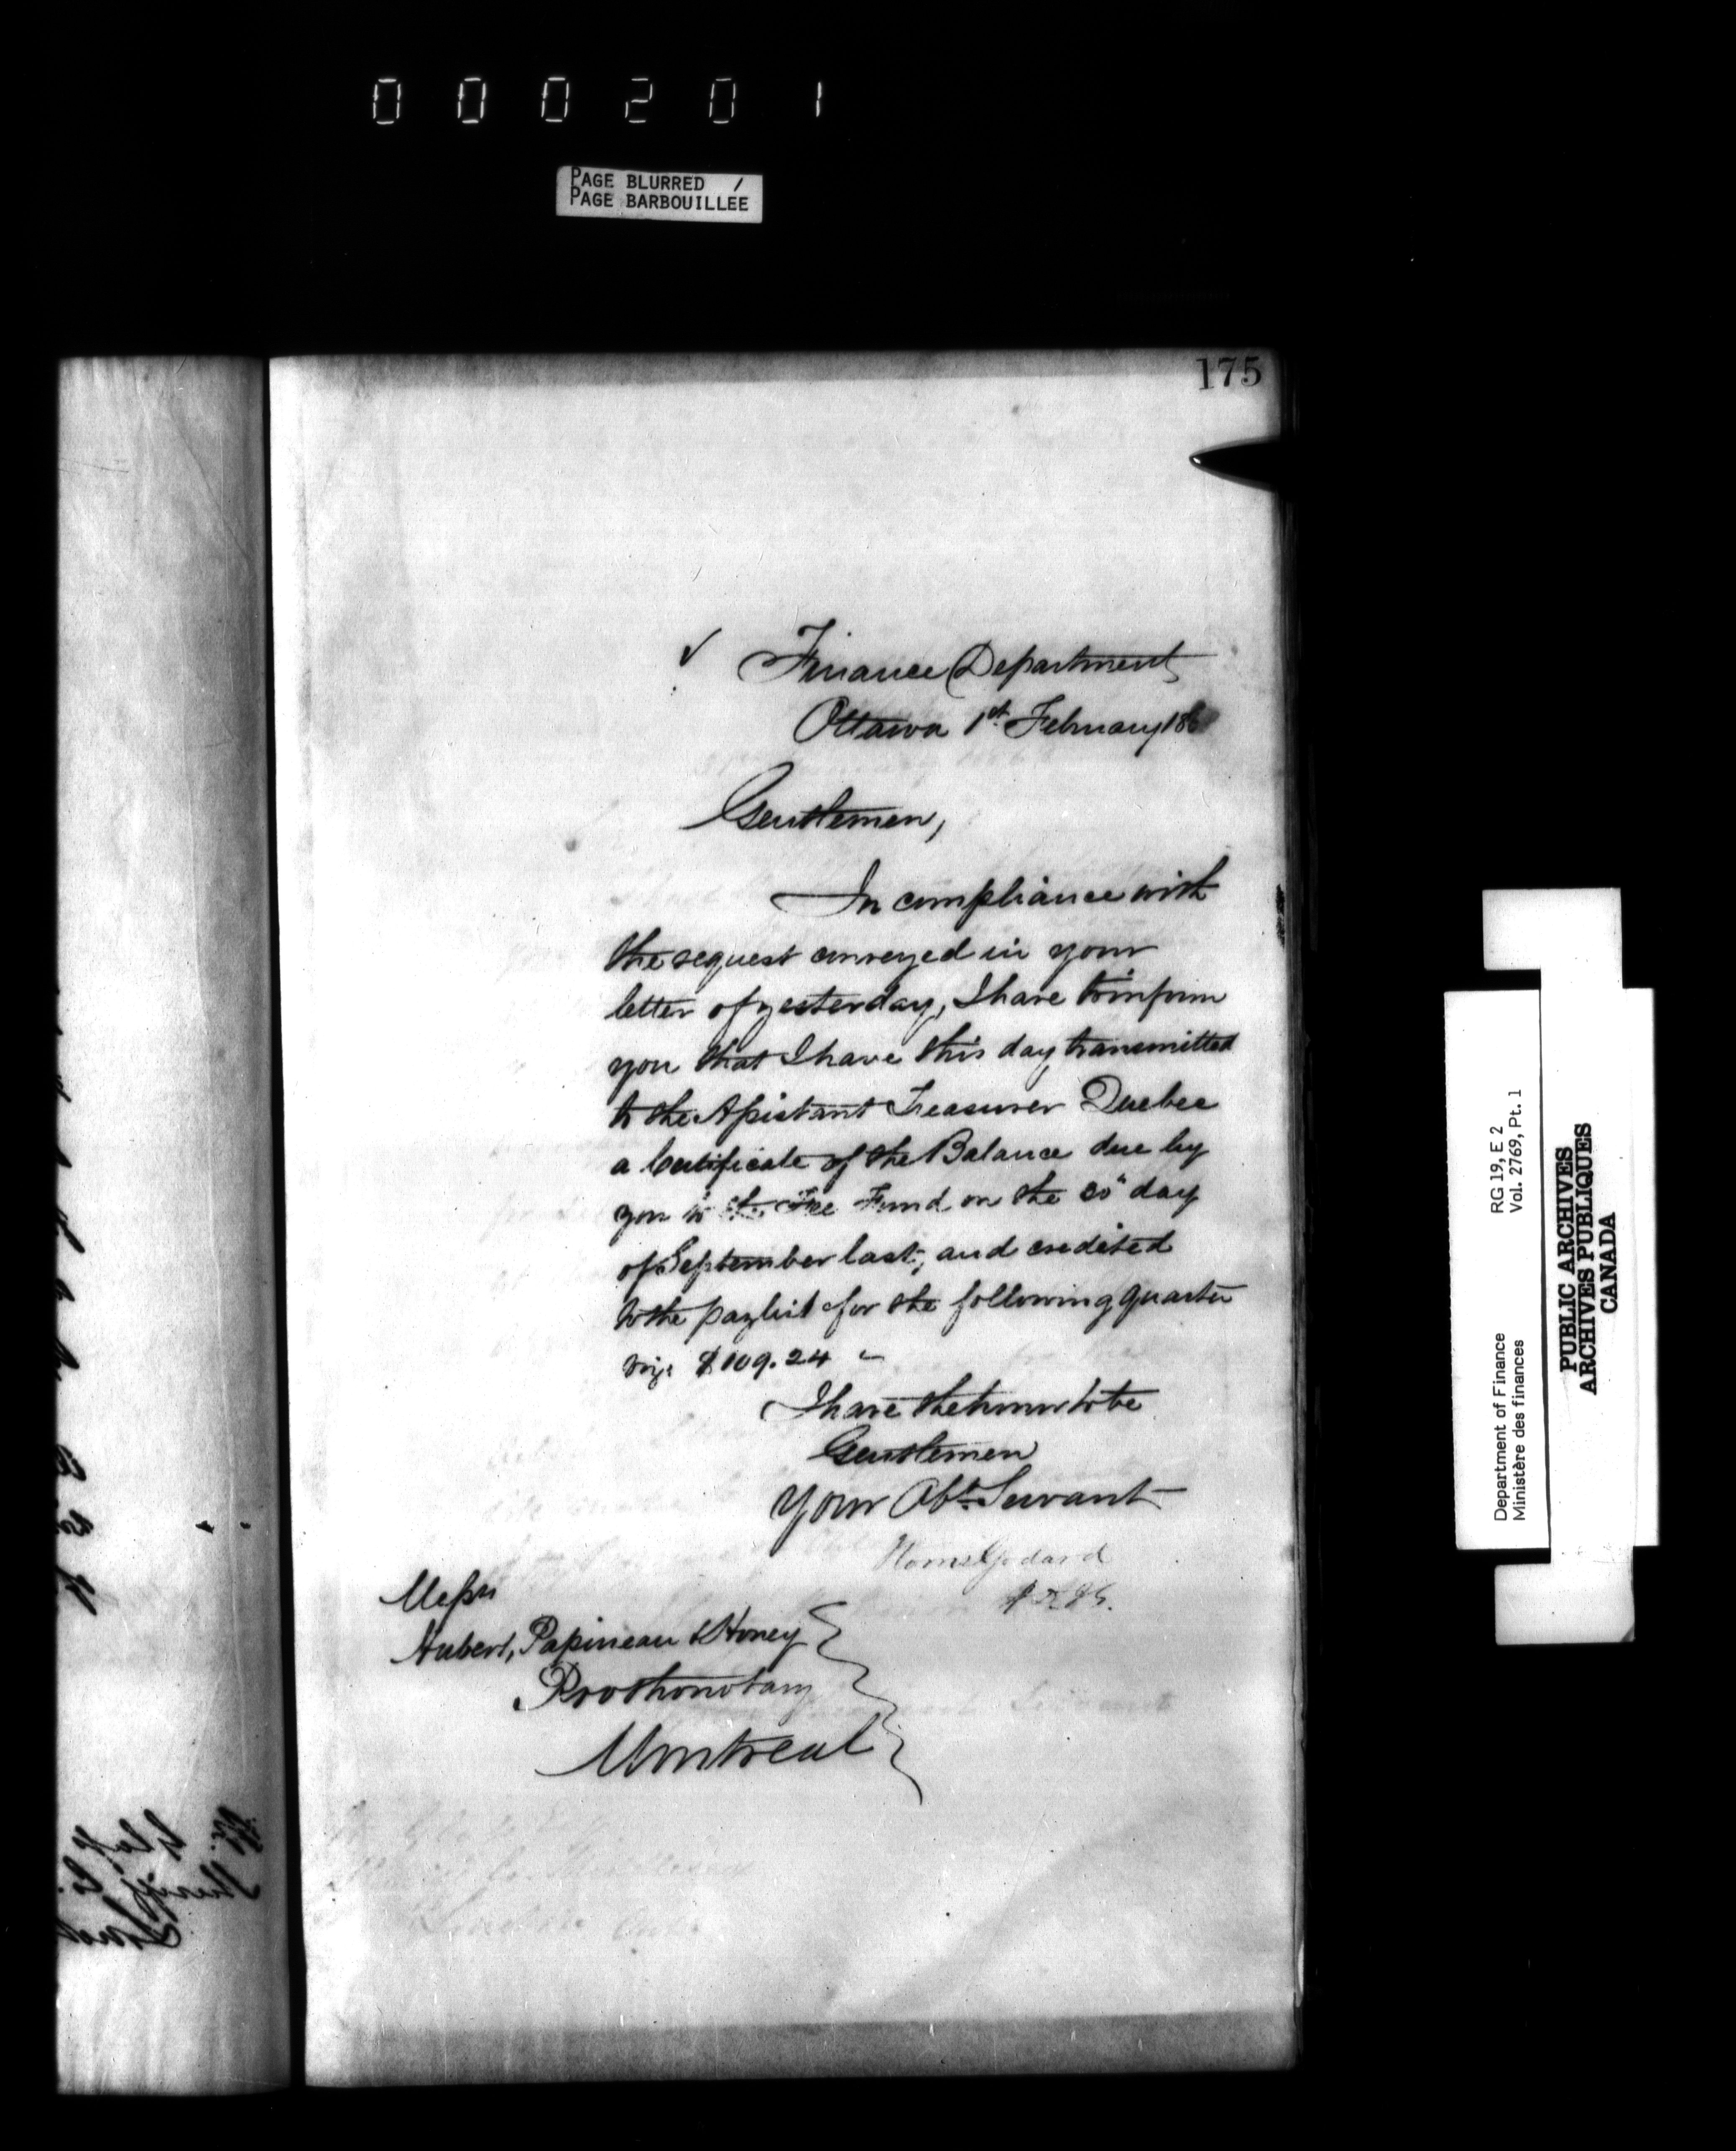 000201
PAGE BLURRED /
PAGE BARBOUILLÉE
175
Finance Department
Ottawa 1st February 186
Gentlemen,
In compliance with
the request conveyed in your
letter of yesterday, I have to inform
you that I have this day transmitted
to the Assistant Treasurer Quebec
a Certificate of the Balance due by
you to the Fee Fund on the 30" day
of September last, and credited
to the paylist for the following quarter
viz: $109.24
I have the honor to be
Gentlemen
Your Obt. Servant
Godard
Messrs
Hubert, Papineau & Honey
Prothonotary
Montreal
Department of Finance RG 19, E 2
Ministère des finances Vol. 2769, Pt. 1
PUBLIC ARCHIVES
ARCHIVES PUBLIQUES
CANADA